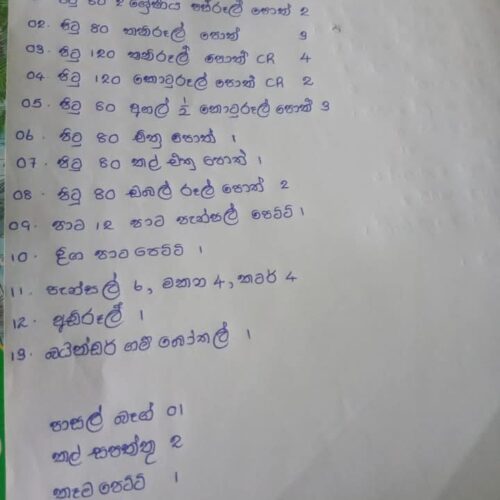 පිටු 80 2 ශ්‍රේණිය පස්රූල් පොත් 2
02. පිටු 80 තනිරූල් පොත් 3
03. පිටු 120 තනිරූල් පොත් CR 4
04. පිටු 120 කොටුරූල් පොත් CR 2
05. පිටු 80 අඟල් ½ කොටුරූල් පොත් 3
06. පිටු 80 චිත්‍ර පොත් 1
07. පිටු 80 කල් චිත්‍ර පොත් 1
08. පිටු 80 ඩබල් රූල් පොත් 2
09. පාට 12 පාට පැන්සල් පෙට්ටි 1
10. දිය පාට පෙට්ටි 1
11. පැන්සල් 6, මකන 4, කටර් 4
12. අඩිරූල් 1
13. බයින්ඩර් ගම් බෝතල් 1
පාසල් බෑග් 01
කල් සපත්තු 2
කෑම පෙට්ටි 1